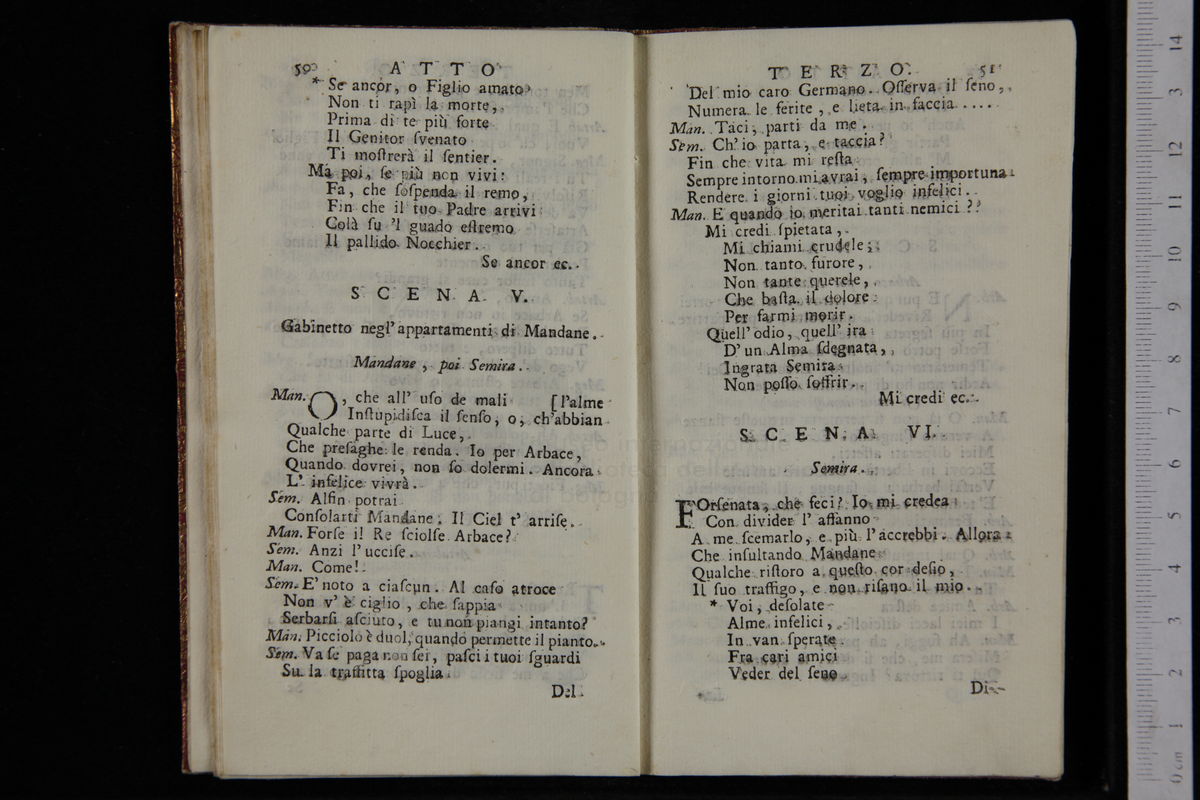 50 ATTO
* Se ancor, o Figlio amato
Non ti rapì la morte,
Prima di te più forte
Il Genitor ſvenato
Ti moſtrerà il ſentier.
Ma poi, ſe più non vivi:
Fa, che ſoſpenda il remo,
Fin che il tuo Padre arrivi
Colà ſu 'l guado eſtremo
Il pallido Nocchier.
Se ancor ec.
SCENA V.
Gabinetto negl' appartamenti di Mandane.
Mandane, poi Semira.
Man. O, che all' uſo de mali [l'alme
Inſtupidiſca il ſenſo, o, ch'abbian
Qualche parte di Luce,
Che preſaghe le renda. Io per Arbace,
Quando dovrei, non ſo dolermi. Ancora
L' infelice vivrà.
Sem. Alfin potrai
Conſolarti Mandane. Il Ciel t' arriſe.
Man. Forſe il Re ſciolſe Arbace?
Sem. Anzi l'ucciſe.
Man. Come!
Sem. E' noto a ciaſcun. Al caſo atroce
Non v' è ciglio, che ſappia
Serbarſi aſciuto, e tu non piangi intanto?
Man. Picciolo è duol, quando permette il pianto.
Sem. Va ſe paga non ſei, paſci i tuoi ſguardi
Su la traffitta ſpoglia
Del
TERZO. 51
Del mio caro Germano. Oſſerva il ſeno,
Numera le ferite, e lieta in faccia .....
Man. Taci, parti da me.
Sem. Ch' io parta, e taccia?
Fin che vita mi reſta
Sempre intorno mi avrai, ſempre importuna
Rendere i giorni tuoi voglio infelici.
Man. E quando io meritai tanti nemici?
Mi credi ſpietata,
Mi chiami crudele;
Non tanto furore,
Non tante querele,
Che baſta il dolore
Per farmi morir.
Quell' odio, quell' ira
D' un Alma ſdegnata,
Ingrata Semira
Non poſſo ſoffrir.
Mi credi ec.
SCENA VI.
Semira.
FOrſenata, che feci? Io mi credea
Con divider l' affanno
A me ſcemarlo, e più l'accrebbi. Allora
Che inſultando Mandane
Qualche riſtoro a queſto cor deſio,
Il ſuo traffigo, e non riſano il mio.
* Voi, deſolate
Alme infelici,
In van ſperate
Fra cari amici
Veder del ſeno
Di-